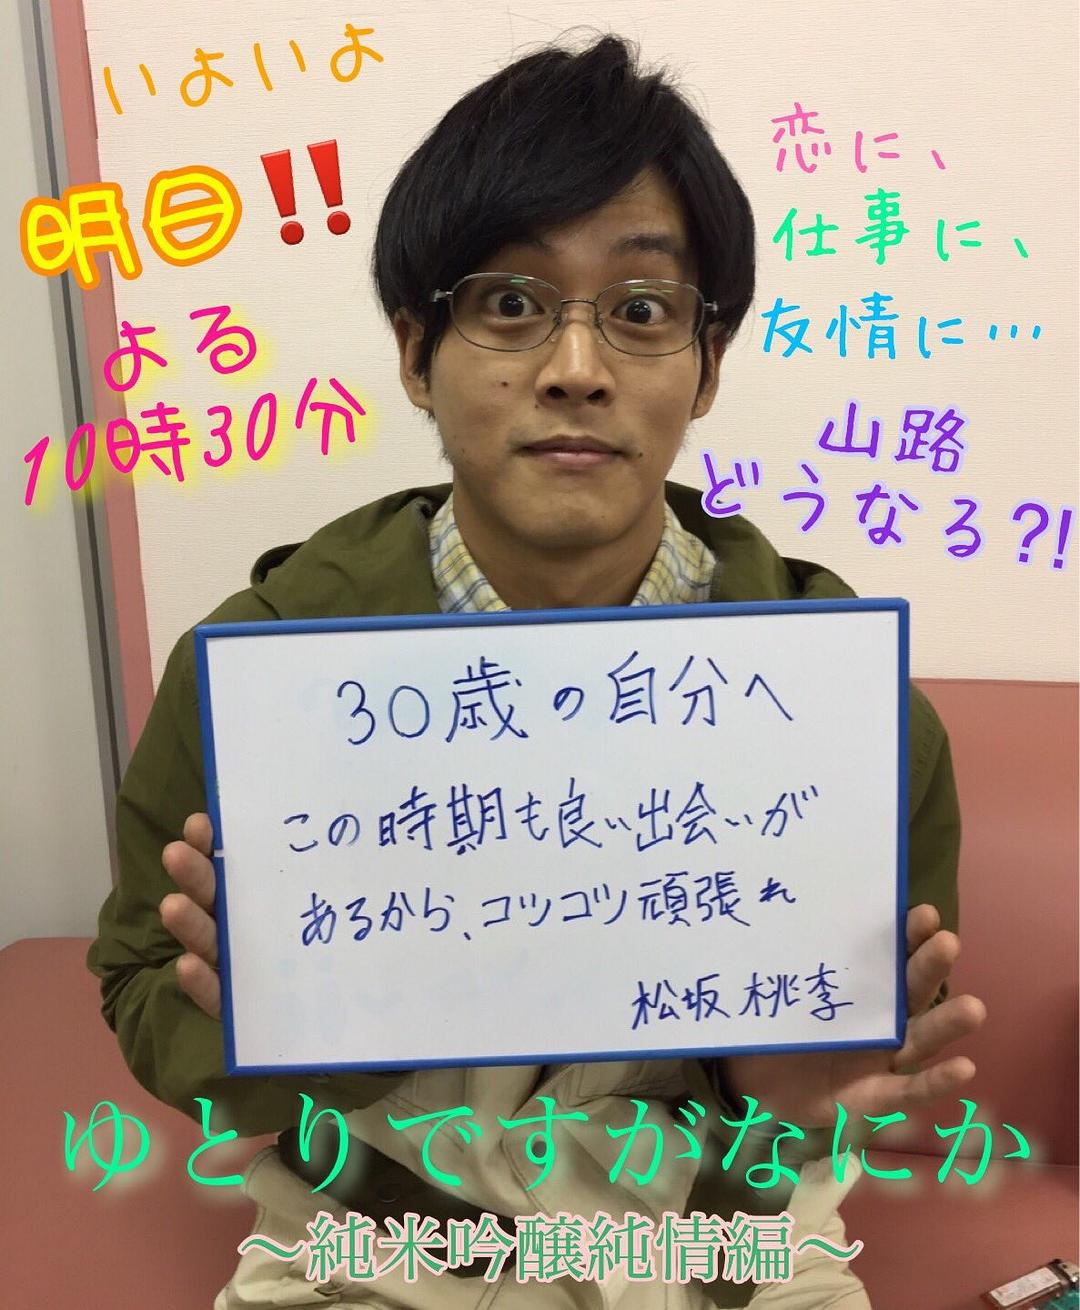 いよいよ
明日‼
よる
10時30分
恋に、
仕事に、
友情に…
山路
どうなる?!
30歳の自分へ
この時期も良い出会いが
あるから、コツコツ頑張れ
松坂桃李
ゆとりですがなにか
～純米吟醸純情編～